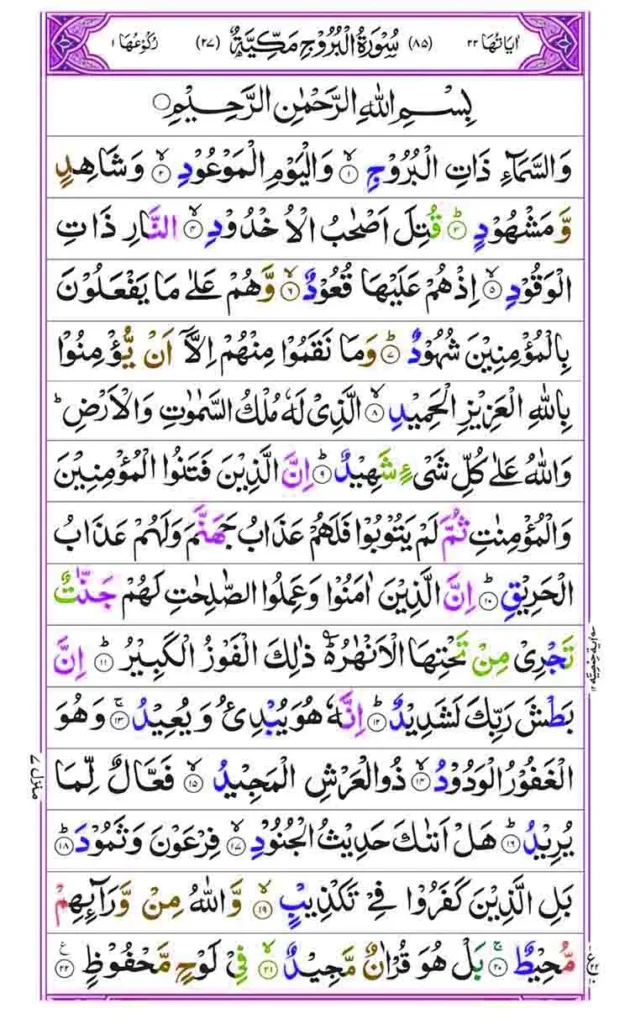 اٰیَاتُهَا ۲۲ (۸۵) سُوْرَةُ الْبُرُوْجِ مَكِّیَّةٌ (۲۷) رُكُوْعُهَا ۱
بِسْمِ اللّٰهِ الرَّحْمٰنِ الرَّحِیْمِ
وَالسَّمَآءِ ذَاتِ الْبُرُوْجِ ۙ﴿۱﴾ وَالْیَوْمِ الْمَوْعُوْدِ ۙ﴿۲﴾ وَشَاهِدٍ
وَّمَشْهُوْدٍ ؕ﴿۳﴾ قُتِلَ اَصْحٰبُ الْاُخْدُوْدِ ۙ﴿۴﴾ النَّارِ ذَاتِ
الْوَقُوْدِ ۙ﴿۵﴾ اِذْهُمْ عَلَیْهَا قُعُوْدٌ ۙ﴿۶﴾ وَّهُمْ عَلٰی مَا یَفْعَلُوْنَ
بِالْمُؤْمِنِیْنَ شُهُوْدٌ ؕ﴿۷﴾ وَمَا نَقَمُوْا مِنْهُمْ اِلَّاۤ اَنْ یُّؤْمِنُوْا
بِاللّٰهِ الْعَزِیْزِ الْحَمِیْدِ ۙ﴿۸﴾ الَّذِیْ لَهٗ مُلْكُ السَّمٰوٰتِ وَالْاَرْضِ ؕ
وَاللّٰهُ عَلٰی كُلِّ شَیْءٍ شَهِیْدٌ ؕ﴿۹﴾ اِنَّ الَّذِیْنَ فَتَنُوا الْمُؤْمِنِیْنَ
وَالْمُؤْمِنٰتِ ثُمَّ لَمْ یَتُوْبُوْا فَلَهُمْ عَذَابُ جَهَنَّمَ وَلَهُمْ عَذَابُ
الْحَرِیْقِ ؕ﴿۱۰﴾ اِنَّ الَّذِیْنَ اٰمَنُوْا وَعَمِلُوا الصّٰلِحٰتِ لَهُمْ جَنّٰتٌ
تَجْرِیْ مِنْ تَحْتِهَا الْاَنْهٰرُ ۬ؕ ذٰلِكَ الْفَوْزُ الْكَبِیْرُ ؕ﴿۱۱﴾ اِنَّ
بَطْشَ رَبِّكَ لَشَدِیْدٌ ؕ﴿۱۲﴾ اِنَّهٗ هُوَ یُبْدِئُ وَیُعِیْدُ ۚ﴿۱۳﴾ وَهُوَ
الْغَفُوْرُ الْوَدُوْدُ ۙ﴿۱۴﴾ ذُوالْعَرْشِ الْمَجِیْدُ ۙ﴿۱۵﴾ فَعَّالٌ لِّمَا
یُرِیْدُ ؕ﴿۱۶﴾ هَلْ اَتٰىكَ حَدِیْثُ الْجُنُوْدِ ۙ﴿۱۷﴾ فِرْعَوْنَ وَثَمُوْدَ ؕ﴿۱۸﴾
بَلِ الَّذِیْنَ كَفَرُوْا فِیْ تَكْذِیْبٍ ۙ﴿۱۹﴾ وَّاللّٰهُ مِنْ وَّرَآئِهِمْ
مُّحِیْطٌ ۚ﴿۲۰﴾ بَلْ هُوَ قُرْاٰنٌ مَّجِیْدٌ ۙ﴿۲۱﴾ فِیْ لَوْحٍ مَّحْفُوْظٍ ﴿۲۲﴾
منزل ۷